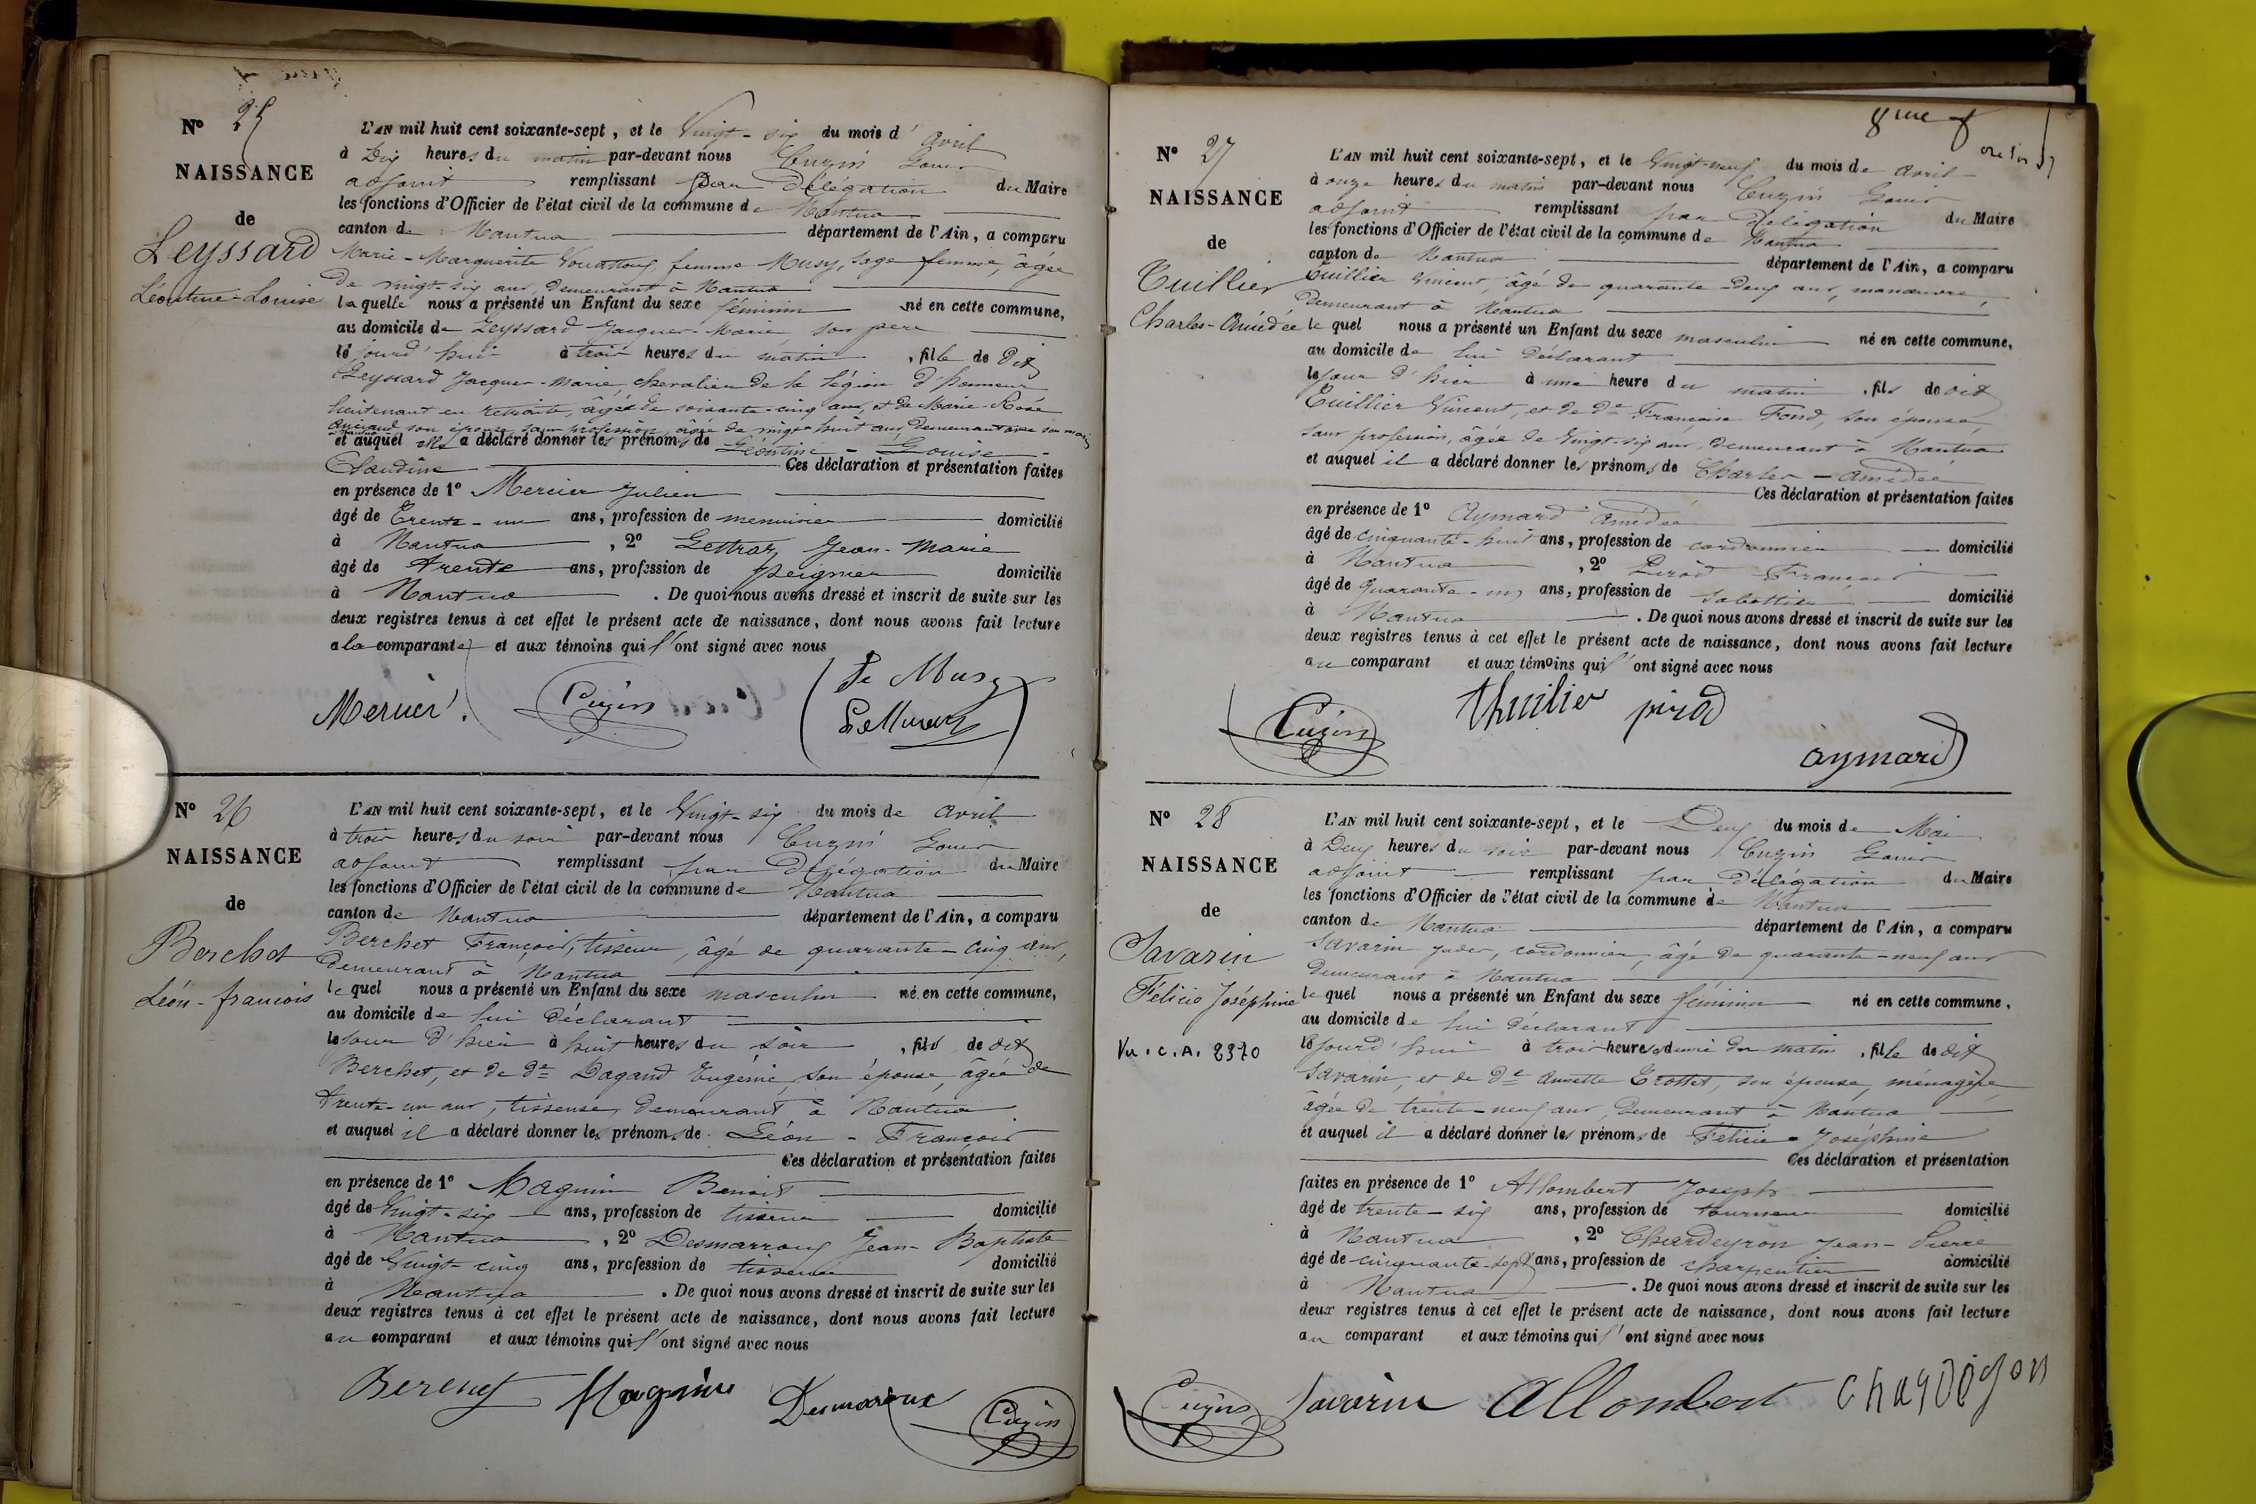 N° 25
NAISSANCE
de
Leyssard
Léontine-Louise
L'AN mil huit cent soixante-sept, et le Vingt-six du mois d'avril
à Dix heures du matin par-devant nous Cuzin Louis
adjoint remplissant par Délégation du Maire
les fonctions d'Officier de l'état civil de la commune de Nantua
canton de Nantua département de l'Ain, a comparu
Marie-Marguerite femme Musy, sage femme, âgée
de vingt-six ans, demeurant à Nantua
laquelle nous a présenté un Enfant du sexe féminin né en cette commune,
au domicile de Leyssard Jacques-Marie son père
le jourd'hui à trois heures du matin, fille de dit
Leyssard Jacques-Marie, chevalier de la légion d'honneur
lieutenant en retraite, âgé de soixante-cinq ans, et de Marie-Rose
son épouse, sans profession, âgée de vingt-huit ans demeurant avec son mari
et auquel elle a déclaré donner les prénoms de Léontine-Louise-
Claudine Ces déclaration et présentation faites
en présence de 1° Mercier Julien
âgé de Trente-un ans, profession de menuisier domicilié
à Nantua, 2° Jean-Marie
âgé de trente ans, profession de peignier domicilié
à Nantua. De quoi nous avons dressé et inscrit de suite sur les
deux registres tenus à cet effet le présent acte de naissance, dont nous avons fait lecture
a la comparante et aux témoins qui l'ont signé avec nous
Mercier Cuzin fe Musy
N° 26
NAISSANCE
de
Berchet
Léon-francois
L'AN mil huit cent soixante-sept, et le Vingt-six du mois de avril
à trois heures du soir par-devant nous Cuzin Louis
adjoint remplissant par Délégation du Maire
les fonctions d'Officier de l'état civil de la commune de Nantua
canton de Nantua département de l'Ain, a comparu
Berchet François, tisseur, âgé de quarante-cinq ans,
demeurant à Nantua
lequel nous a présenté un Enfant du sexe masculin né en cette commune,
au domicile de lui déclarant
le jour d'hier à huit heures du soir, fils de dit
Berchet, et de de Dagand Eugénie, son épouse, âgée de
trente-un ans, tisseuse, demeurant à Nantua
et auquel il a déclaré donner les prénoms de Léon-François
Ces déclaration et présentation faites
en présence de 1° Magnin Benoit
âgé de Vingt-six ans, profession de tisseur domicilié
à Nantua, 2° Desmarroux Jean-Baptiste
âgé de Vingt-cinq ans, profession de tisseur domicilié
à Nantua. De quoi nous avons dressé et inscrit de suite sur les
deux registres tenus à cet effet le présent acte de naissance, dont nous avons fait lecture
au comparant et aux témoins qui l'ont signé avec nous
Berchet Magnin Desmaroux Cuzin
8me f
N° 27
NAISSANCE
de
Tuillier
Charles-Amédée
L'AN mil huit cent soixante-sept, et le Vingt-neuf du mois de avril
à onze heures du matin par-devant nous Cuzin Louis
adjoint remplissant par Délégation du Maire
les fonctions d'Officier de l'état civil de la commune de Nantua
canton de Nantua département de l'Ain, a comparu
Tuillier Vincent, âgé de quarante-deux ans, manœuvre,
demeurant à Nantua
lequel nous a présenté un Enfant du sexe masculin né en cette commune,
au domicile de lui déclarant
le jour d'hier à une heure du matin, fils de dit
Tuillier Vincent, et de de Françoise Fond, son épouse,
sans profession, âgée de Vingt-six ans, demeurant à Nantua
et auquel il a déclaré donner les prénoms de Charles-Amédée
Ces déclaration et présentation faites
en présence de 1° Aymard Amédée
âgé de cinquante-huit ans, profession de cordonnier domicilié
à Nantua, 2° Pirod François
âgé de quarante-un ans, profession de sabottier domicilié
à Nantua. De quoi nous avons dressé et inscrit de suite sur les
deux registres tenus à cet effet le présent acte de naissance, dont nous avons fait lecture
au comparant et aux témoins qui l'ont signé avec nous
Cuzin thuilier pirod
aymard
N° 28
NAISSANCE
de
Savarin
Félicie Joséphine
Vu. C. A. 2370
L'AN mil huit cent soixante-sept, et le Deux du mois de Mai
à Deux heures du soir par-devant nous Cuzin Louis
adjoint remplissant par Délégation du Maire
les fonctions d'Officier de l'état civil de la commune de Nantua
canton de Nantua département de l'Ain, a comparu
Savarin, cordonnier, âgé de quarante-neuf ans
demeurant à Nantua
lequel nous a présenté un Enfant du sexe féminin né en cette commune,
au domicile de lui déclarant
le jourd'hui à trois heures demie du matin, fille de dit
Savarin, et de de Annette Trottet, son épouse, ménagère,
âgée de trente-neuf ans, demeurant à Nantua
et auquel il a déclaré donner les prénoms de Félicie-Joséphine
Ces déclaration et présentation
faites en présence de 1° Allombert Joseph
âgé de trente-six ans, profession de tourneur domicilié
à Nantua, 2° Chardeyron Jean-Pierre
âgé de cinquante-sept ans, profession de charpentier domicilié
à Nantua. De quoi nous avons dressé et inscrit de suite sur les
deux registres tenus à cet effet le présent acte de naissance, dont nous avons fait lecture
au comparant et aux témoins qui l'ont signé avec nous
Cuzin Savarin Allombert